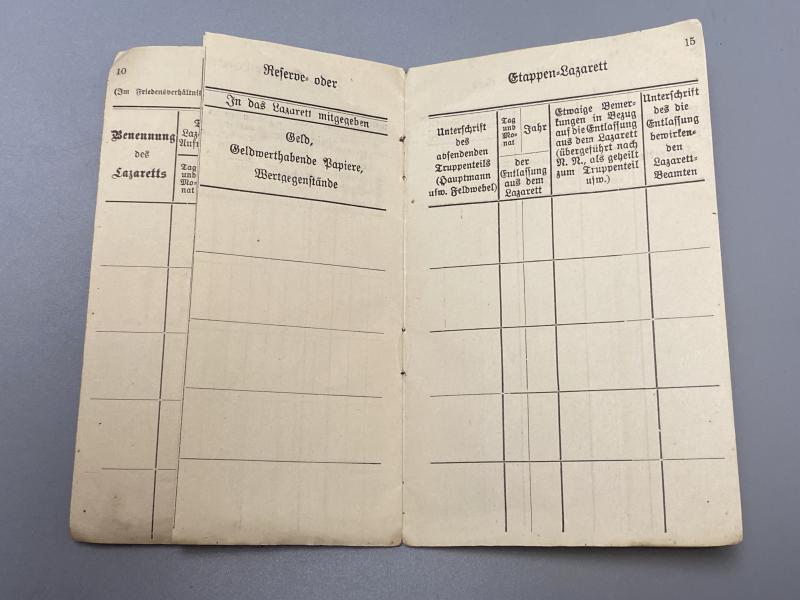 10
(Im Friedensverhältnis
Benennung
des
Lazaretts
Tag
und
Mo-
nat
Reserve- oder
In das Lazarett mitgegeben
Geld,
Geldwerthabende Papiere,
Wertgegenstände
15
Etappen-Lazarett
Unterschrift
des
absendenden
Truppenteils
(Hauptmann
usw. Feldwebel)
Tag
und
Mo-
nat
Jahr
der
Entlassung
aus dem
Lazarett
Etwaige Bemer-
kungen in Bezug
auf die Entlassung
aus dem Lazarett
(übergeführt nach
N. N., als geheilt
zum Truppenteil
usw.)
Unterschrift
des die
Entlassung
bewirken-
den
Lazarett-
Beamten